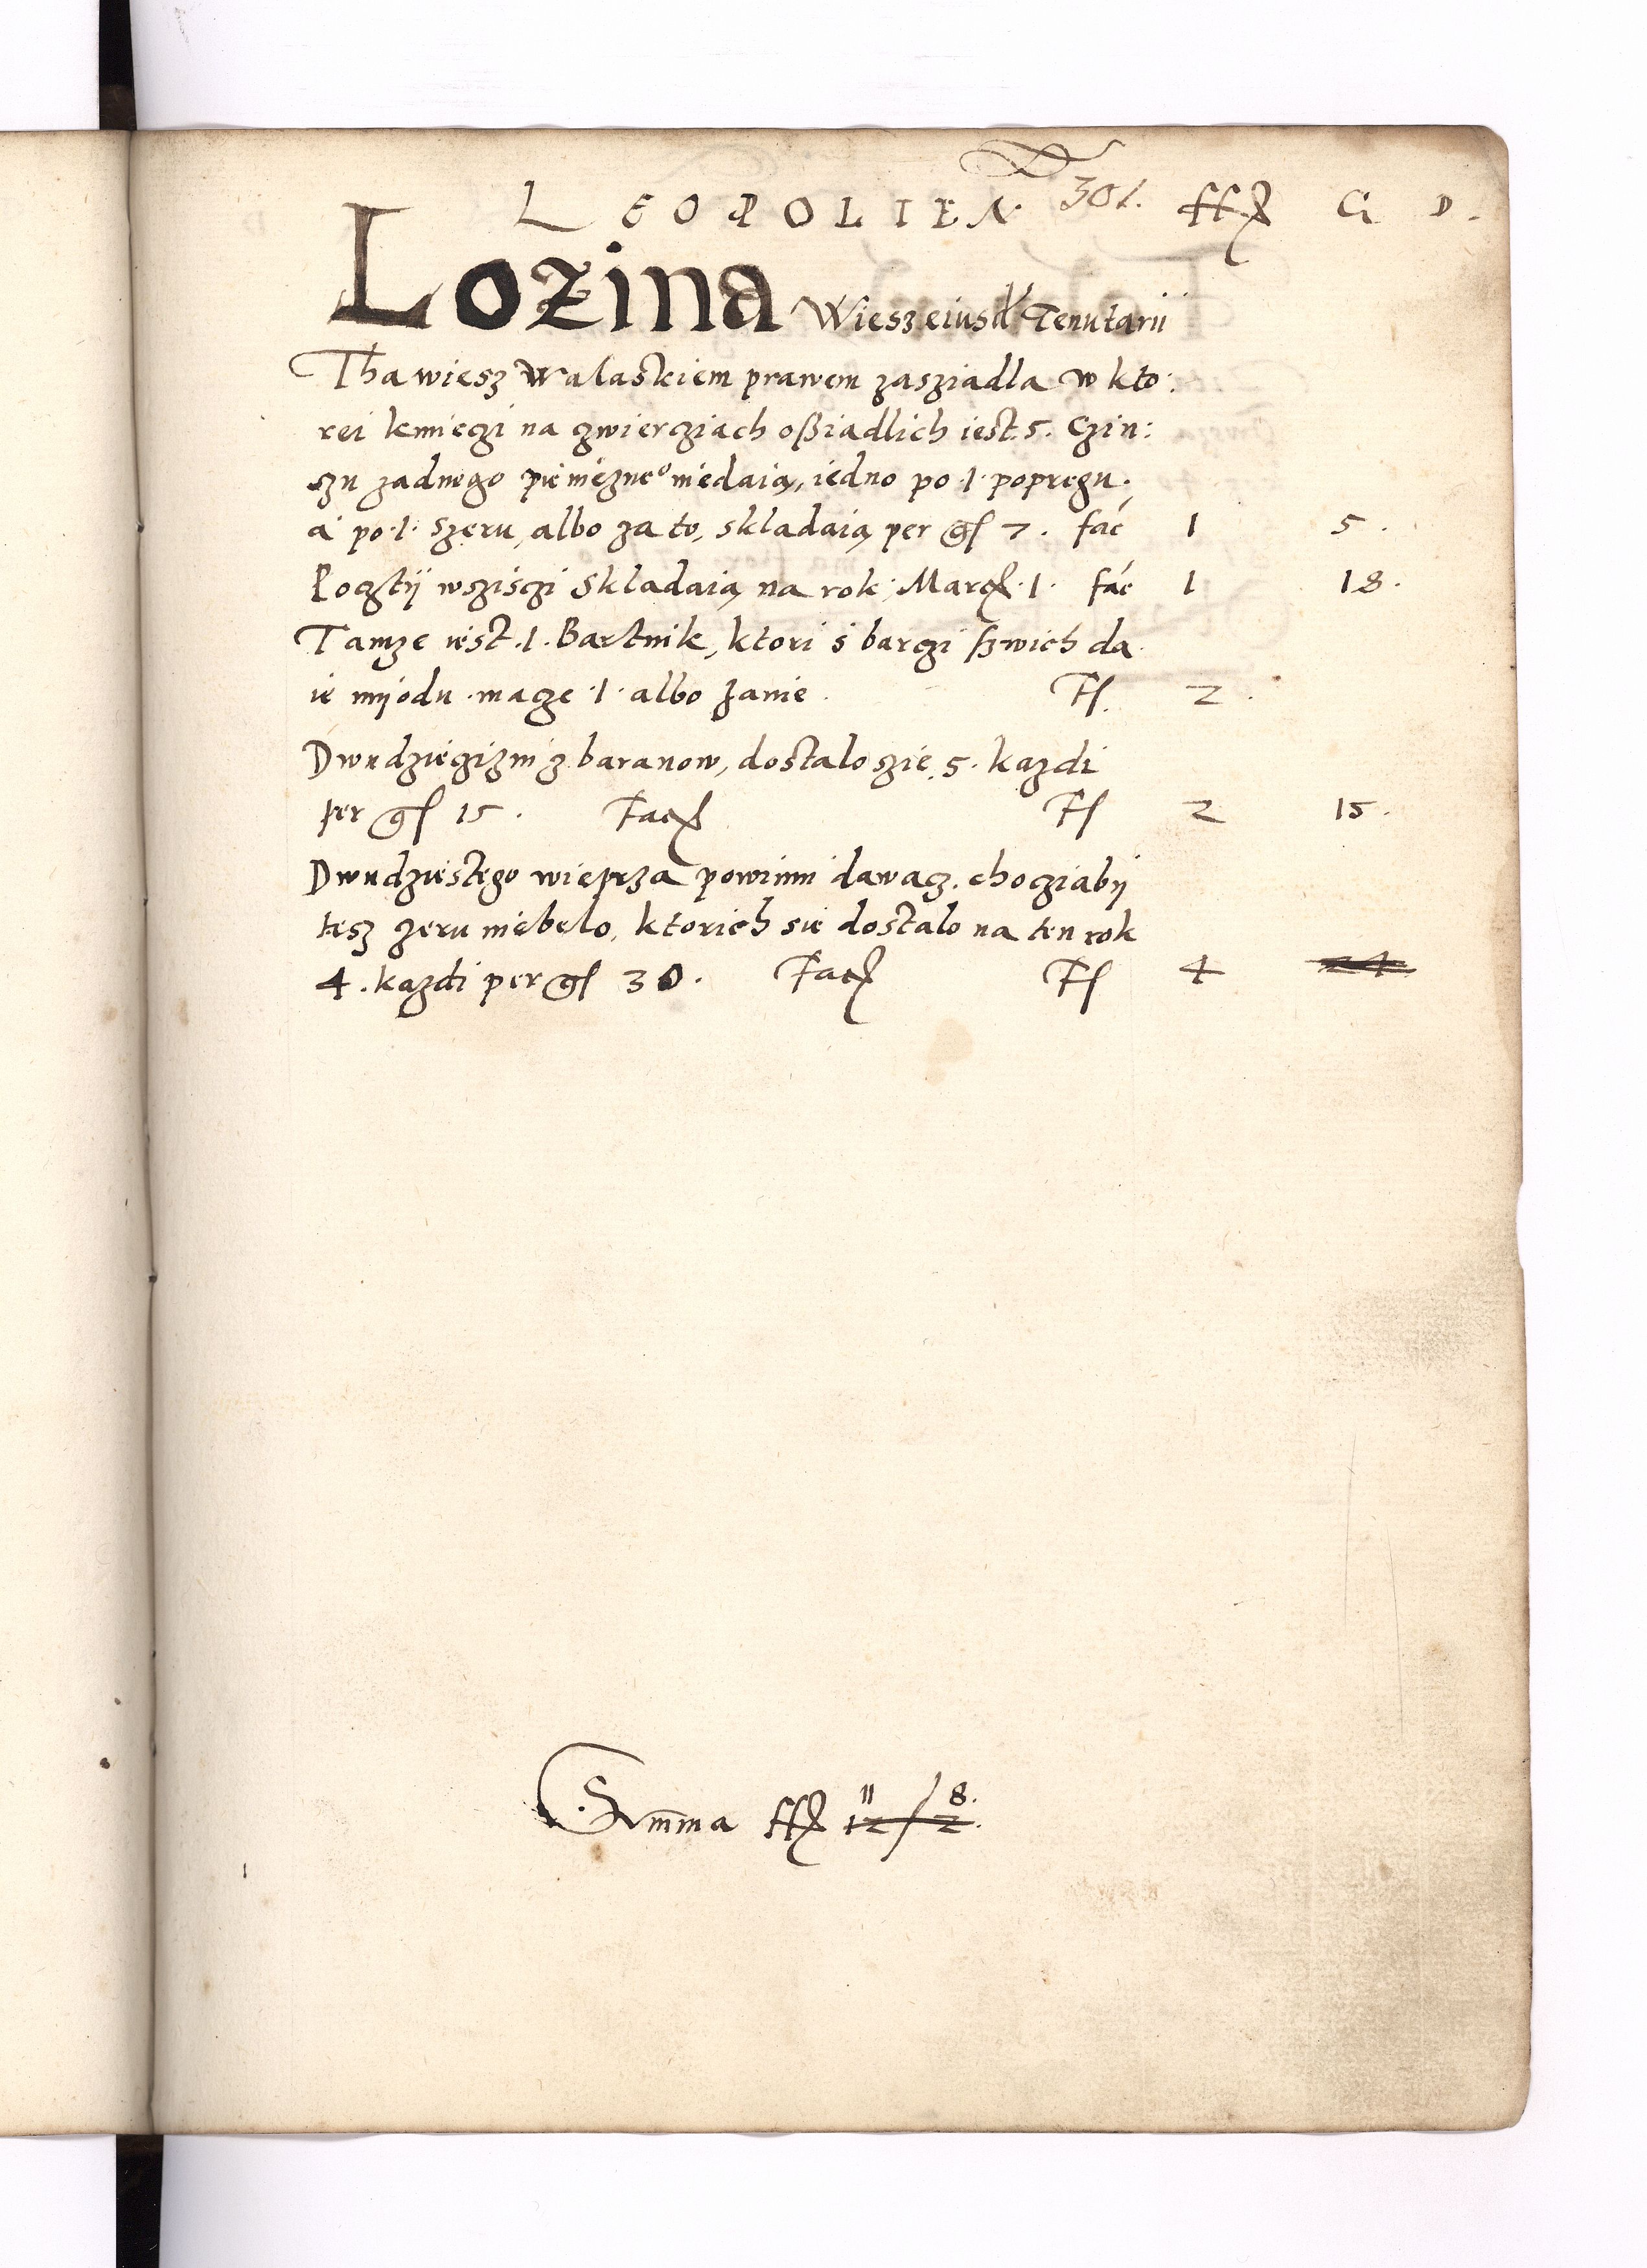 LEOPOLIEN 301. ff G D.
Lozina Wiesz eiusd Tenutarii
Tha wiesz Walaskiem prawem zasziadla w kto:
rei kmieczi na czwierciach osziadlich iest 5. Czin:
szu zadnego pieniezne° niedaią, iedno po 1 popregu.
á po 1. szeru, albo za to, skladaią per gr 7. fac 1 5.
Pocztij wsziśczi Skladaią na rok Marc 1. fac 1 18.
Tamze iest .1. Bartnik, ktori s barczi szwich da
ie mijodu macze 1 albo zanie. Fl. 2.
Dwudzieczizni z baranow, dostalo szie 5. kazdi
per gr 15. Fac Fl 2 15.
Dwudziestego wieprza powinni dawacz. chocziabij
tesz zeru niebelo, ktorich sie dostalo na ten rok
4. kazdi per gr 30. Fac Fl 4
Summa ff 11 / 8.
12 / 2.